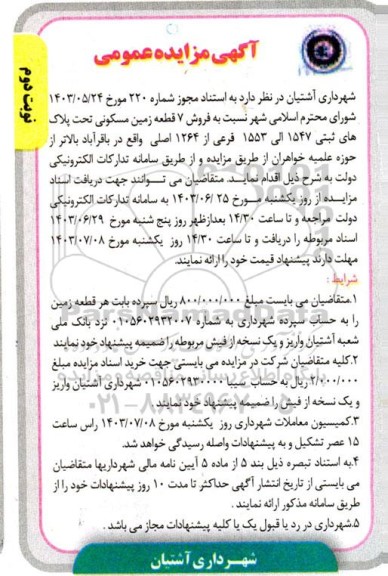 آگهی مزایده عمومی
نوبت دوم
شهرداری آشتیان در نظر دارد به استناد مجوز شماره ۲۲۰ مورخ ۱۴۰۳/۰۵/۲۴
شورای محترم اسلامی شهر نسبت به فروش ۷ قطعه زمین مسکونی تحت پلاک
های ثبتی ۱۵۴۷ الی ۱۵۵۳ فرعی از ۱۲۶۴ اصلی واقع در باقرآباد بالاتر از
حوزه علمیه خواهران از طریق مزایده و از طریق سامانه تدارکات الکترونیکی
دولت به شرح ذیل اقدام نمایـد. متقاضیان می تـوانند جهت دریافت اسناد
مزایـده از روز یکشنبه مـورخ ۲۵ /۱۴۰۳/۰۶ به سامانه تدارکات الکترونیکی
دولت مراجعه و تا ساعت ۱۴/۳۰ بعدازظهر روز پنج شنبه مورخ ۱۴۰۳/۰۶/۲۹
اسناد مربوطه را دریافت و تا ساعت ۱۴/۳۰ روز یکشنبه مورخ ۱۴۰۳/۰۷/۰۸
مهلت دارند پیشنهاد قیمت خود را ارائه نمایند.
شرایط :
۱.متقاضیان می بایست مبلغ ۸۰۰/۰۰۰/۰۰۰ ریال سپرده بابت هر قطعه زمین
را به حساب سپرده شهرداری به شماره ۰۱۰۵۶۰۲۹۳۲۰۰۷ نزد بانک ملی
شعبه آشتیان واریز و یک نسخه از فیش مربوطه را ضمیمه پیشنهاد خود نمایند
۲.کلیه متقاضیان شرکت در مزایده می بایستی جهت خرید اسناد مزایده مبلغ
۲/۰۰۰/۰۰۰ ریال به حساب سیبا ۰۱۰۵۶۰۲۹۳۰۰۰۰ شهرداری آشتیان واریز
و یک نسخه از فیش را ضمیمه پیشنهاد خود نمایند.
۳.کمیسیون معاملات شهرداری روز یکشنبه مورخ ۱۴۰۳/۰۷/۰۸ راس ساعت
۱۵ عصر تشکیل و به پیشنهادات واصله رسیدگی خواهد شد.
۴.به استناد تبصره ذیل بند ۵ از ماده ۵ آیین نامه مالی شهرداریها متقاضیان
می بایستی از تاریخ انتشار آگهی حداکثر تا مدت ۱۰ روز پیشنهادات خود را از
طریق سامانه مذکور ارائه نمایند .
۵.شهرداری در رد یا قبول یک یا کلیه پیشنهادات مجاز می باشد .
شهـرداری آشتیان